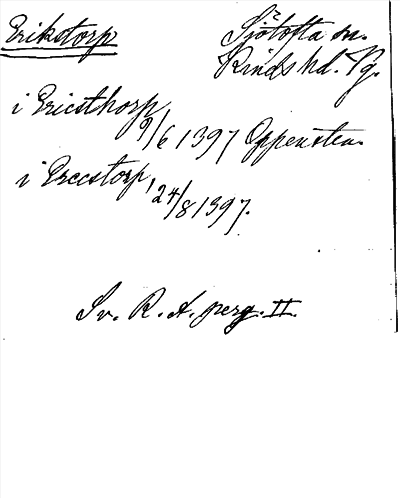 Erikstorp
Sjötofta sn.
Kinds hd. Vg.
i Ericsthorp 9/6 1397 Oppensten.
i Ereestorp, 24/8 1397.
Sv. R. A. perg. II.